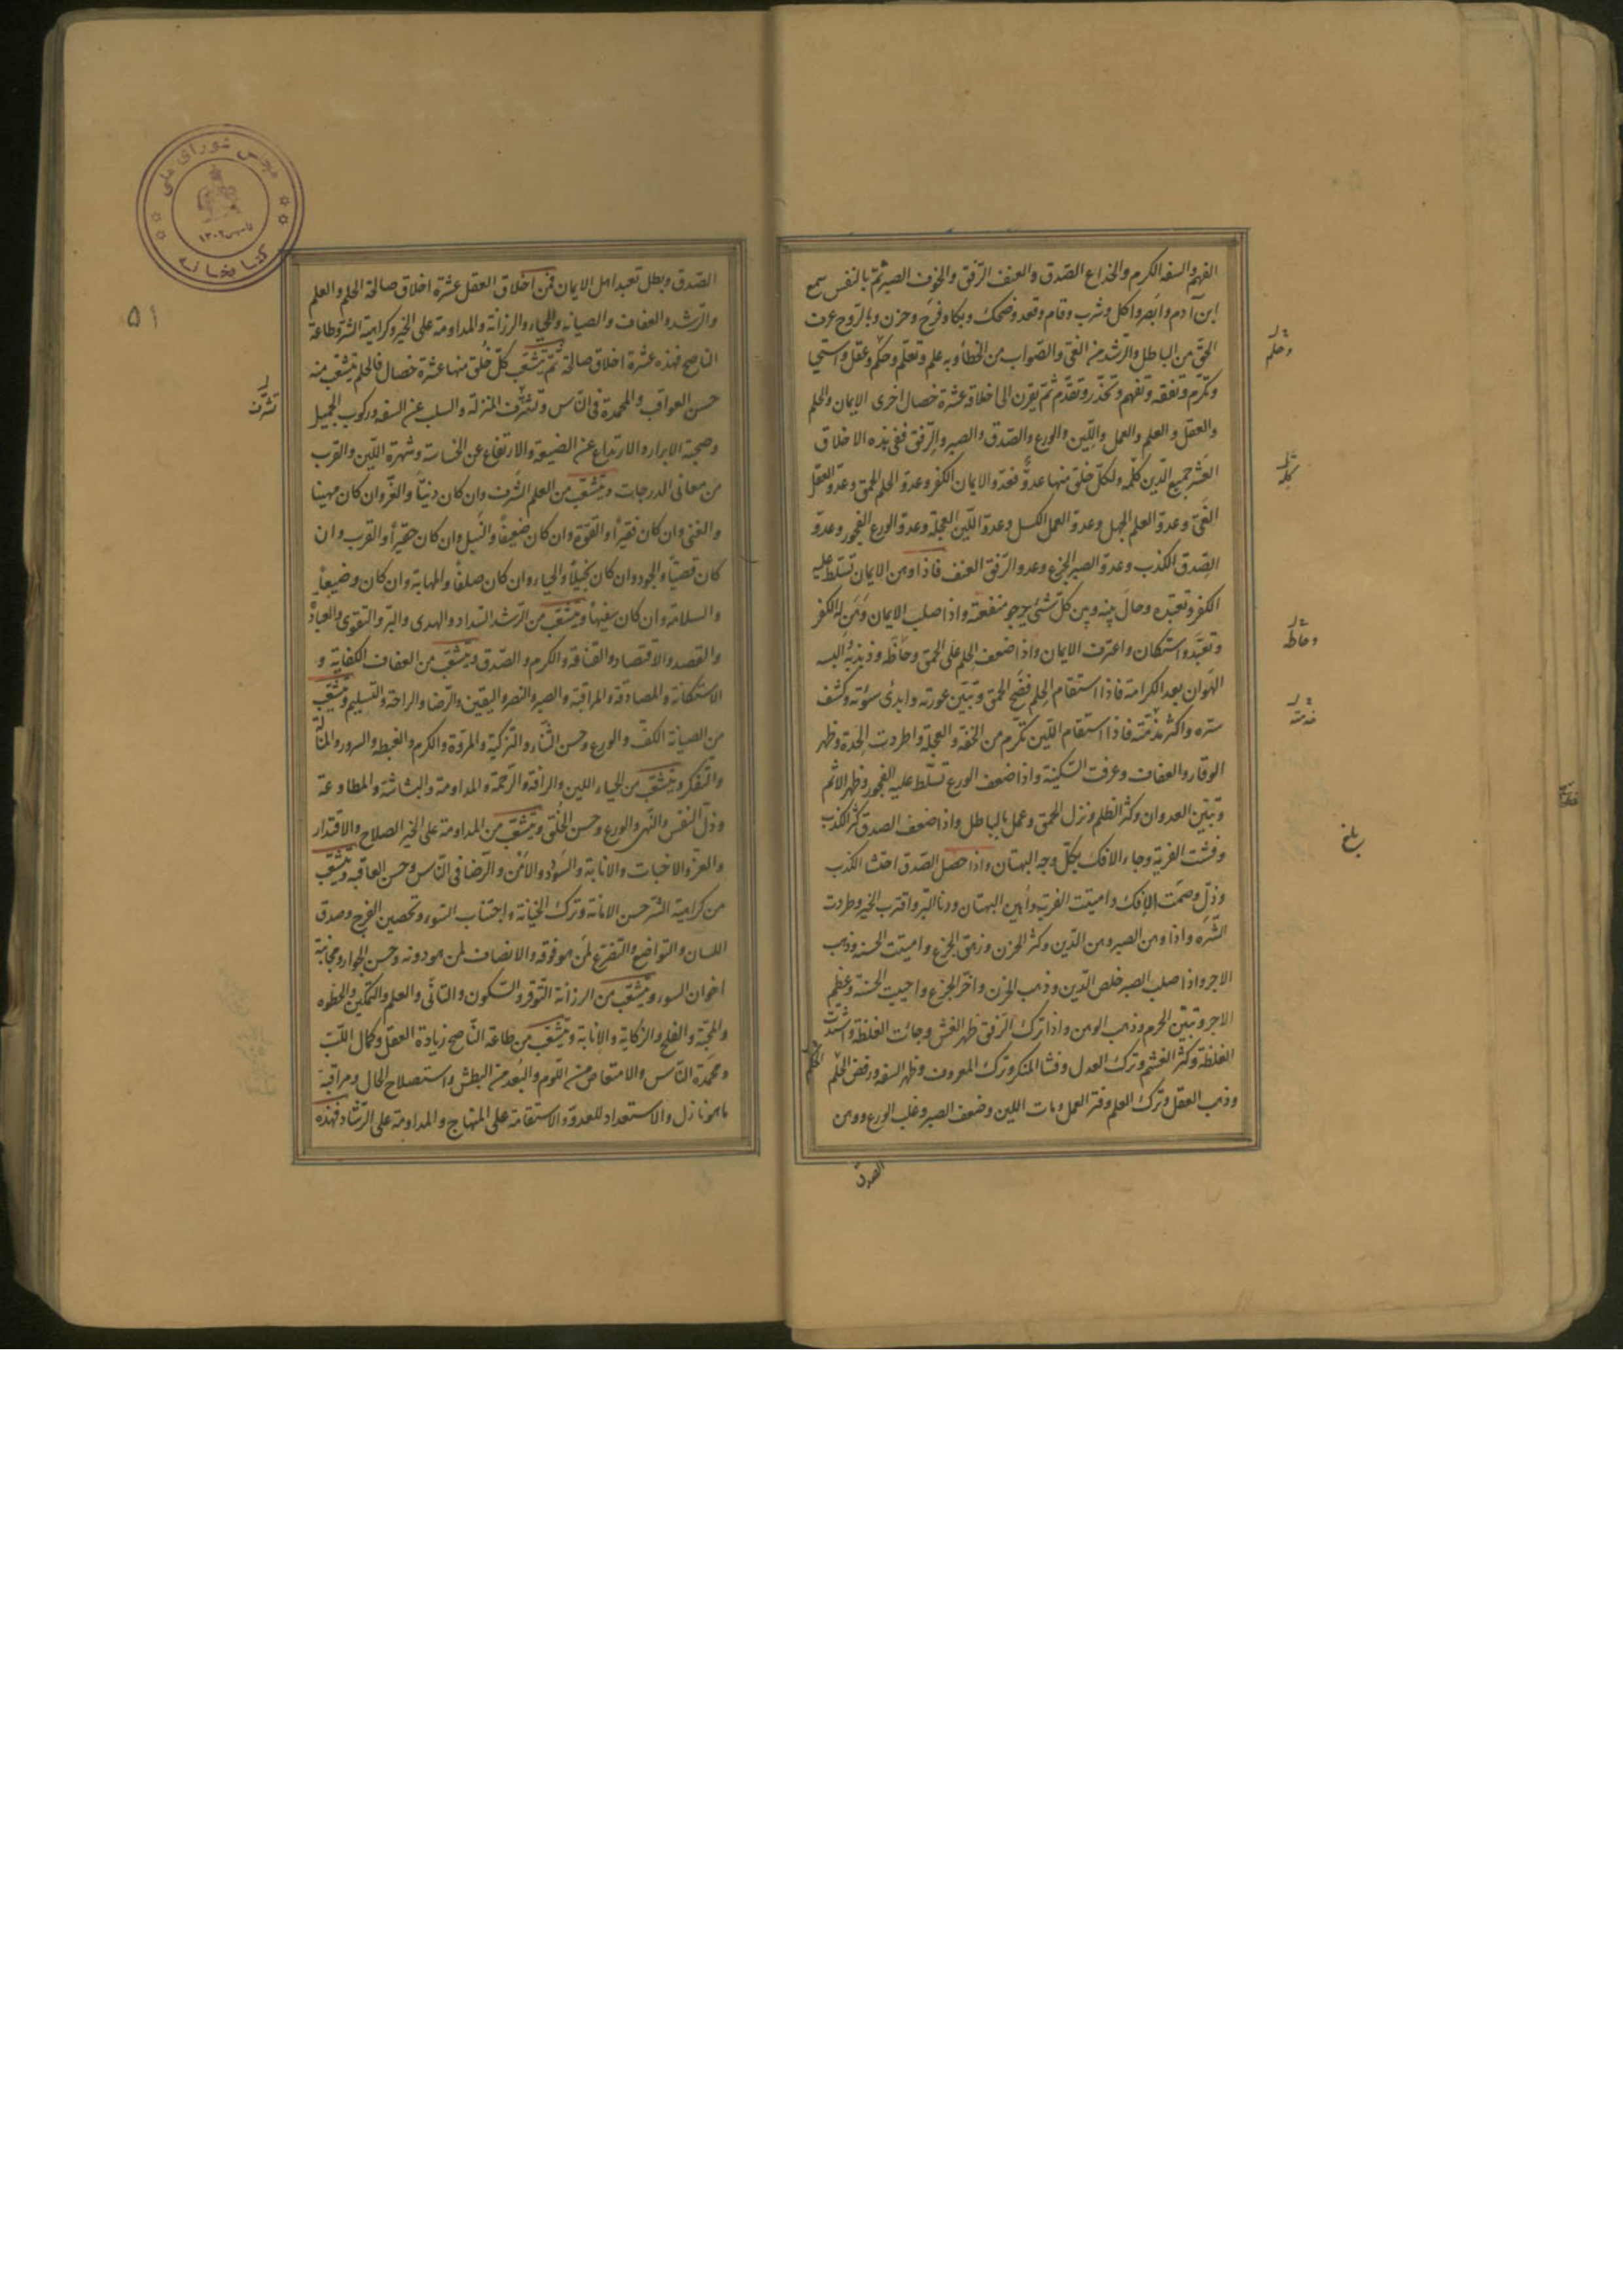 الفهم والسفه الكرم والخداع الصّدق والعنف الرّفق والخوف الصبر ثمّ بالنفس سمع
ابن آدم وابصر واكل وشرب وقام وقعد وضحك وبكا وفرح وحزن وبالروح عرف
الحقّ من الباطل والرّشد من الغىّ والصّواب من الخطأ وبه علم وتعلّم وحكم وعقل واستحيا
وتكرّم وتفقّه وتفهم وتحذّر وتقدّم ثمّ يقرن الى اخلاقه عشرة خصال اخرى الايمان والحلم
والعقل والعلم والعمل واللّين والورع والصّدق والصبر والرّفق ففى هذه الاخلاق
العَشر جميع الدّين كلّه ولكلّ خلق منها عدوّ فعدّو الايمان الكفر وعدوّ الحلم الحمق وعدوّ العقل
الغىّ وعدوّ العلم الجهل وعدوّ العمل الكسل وعدوّ اللّين العجلة وعدوّ الورع الفجور وعدوّ
الصّدق الكذب وعدوّ الصبر الجزع وعدو الرّفق العنف فاذا وهن الايمان تسلّط عليه
الكفر وتعبّده وحال بينه وبين كلّ شئ يرجو منفعته واذا صلب الايمان وهَن له الكفر
وتعبّد واستكان واعترف الايمان واذا ضعف الحلم على الحمق وحاطه وذبذبه والبسه
الهَوان بعد الكرامة فاذا استقام الحِلم فضح الحمق وتبيّن عورته وابدى سئوته وكشف
ستره واكثر مذمّته فاذا استقام اللّين تكرّم من الخفّة والعجلة واطردت الحدّة وظهر
الوقار والعفاف وعرفت السّكينة واذا ضعف الورع تسلّط عليه الفجور وظهر الاثم
وتبيّن العدوان وكثر الظلم ونزل الحمق وعمل بالباطل واذا ضعف الصدق كثر الكذب
وفشت الفرية وجاء الافك بكلّ وجه البهتان واذا حصل الصّدق اختسا الكذب
وذلّ وصمَت الإفك واميتت الفرية وأهين البهتان ودنا البّر واقترب الخير وطردت
الشّرَه واذا وهن الصبر وهن الدّين وكثر الحزن وزهق الجزع واميتت الحسنة وذهب
الاجر واذا صلب الصبر خلص الدّين وذهب الحزن واخّر الجزع واحييت الحسنة وعظم
الاجر وتبيّن الحزم وذهب الوهن واذا ترك الرّفق ظهر الغش وجائت الغلظة واشتدّت
الغلظة وكثر الغشم وترك العدل وفشا المنكر وترك المعروف وظهر السفه ورفض الحلم
وذهب العقل وترك العلم وفتر العمل ومات اللين وضعف الصبر وغلب الورع ووهن
الصدق
وحلم
كله
وحاطه
بلغ
الحلم
الصّدق وبطل تعبد اهل الايمان فمن اخلاق العقل عشرة اخلاق صالحة الحلم والعلم
والرّشد والعفاف والصيانه والحياء والرزانة والمداومة على الخير وكراهية الشر وطاعة
الناصح فهذه عشرة اخلاق صالحة ثمّ يتشعّب كلّ خُلق منها عشرة خصال فالحلم يتشعّب منه
حسن العواقب والمحمدة فى النّاس وتشرّف المنزلة والسلب عن السفه وركوب الجميل
وصحبة الابرار والارتداع عن الضيعة والارتفاع عن الخساسة وشهرة اللّين والقرب
من معالى الدرجات ويتشعّب من العلم الشرف وان كان دنيّاً والعزّ وان كان مهينا
والغنى وان كان فقيراً والقوّة وان كان ضعيفاً والنبل وان كان حقيراً والقرب وان
كان قصيّاً والجود وان كان بخيلاً والحياء وان كان صلفاً والمهابة وان كان وضيعاً
والسلامة وان كان سفيهاً ويتشعّب من الرّشد السّداد والهدى والبّر والتقوى والعبادة
والقصد والاقتصاد والقناعة والكرم والصّدق ويتشعّب من العفاف الكفاية و
الاستكانة والمصادقة والمراقبة والصبر والنصر واليقين والرّضا والراحة والتسليم ويتشعّب
من الصيانة الكفّ والورع وحسن الثّناء والتزكية والمروّة والكرم والغبطه والسرور والمنالة
والتّفكر ويتشعّب من الحياء اللين والرافة والرّحمة والمداومة والبشاشة والمطاوعة
وذلّ النفس والنّهى والورع وحسن الخُلق ويتشعّب من المداومة على الخير الصلاح والاقتدار
والعزّ والاخبات والانابة والسودد والامْن والرّضا فى النّاس وحسن العاقبة ويتشعّب
من كراهية الشّر حسن الامانة وترك الخيانة واجتناب السّوء وتحصين الفرج وصدق
اللسان والتواضع والتضرّع لمن هو فوقه والانصاف لمن هو دونه وحسن الجوار ومجانبة
اخوان السوء ويتشعّب من الرزانة التّوقر والسّكون والتانّى والعلم والتمكين والحظوه
والمحبّة والفلج والزكاية والانابة ويتشعّب من طاعة النّاصح زيادة العقل وكمال اللّبّ
ومحمدة النّاس والامتعاض من اللّوم والبُعد من البطش واستصلاح الحال ومراقبة
ما هو نازل والاستعداد للعدوّ والاستقامة على المنهاج والمداومة على الرّشاد فهذه
تشرف
۵۱
مجلس شورای ملی
۱۳۰۲
کتابخانه